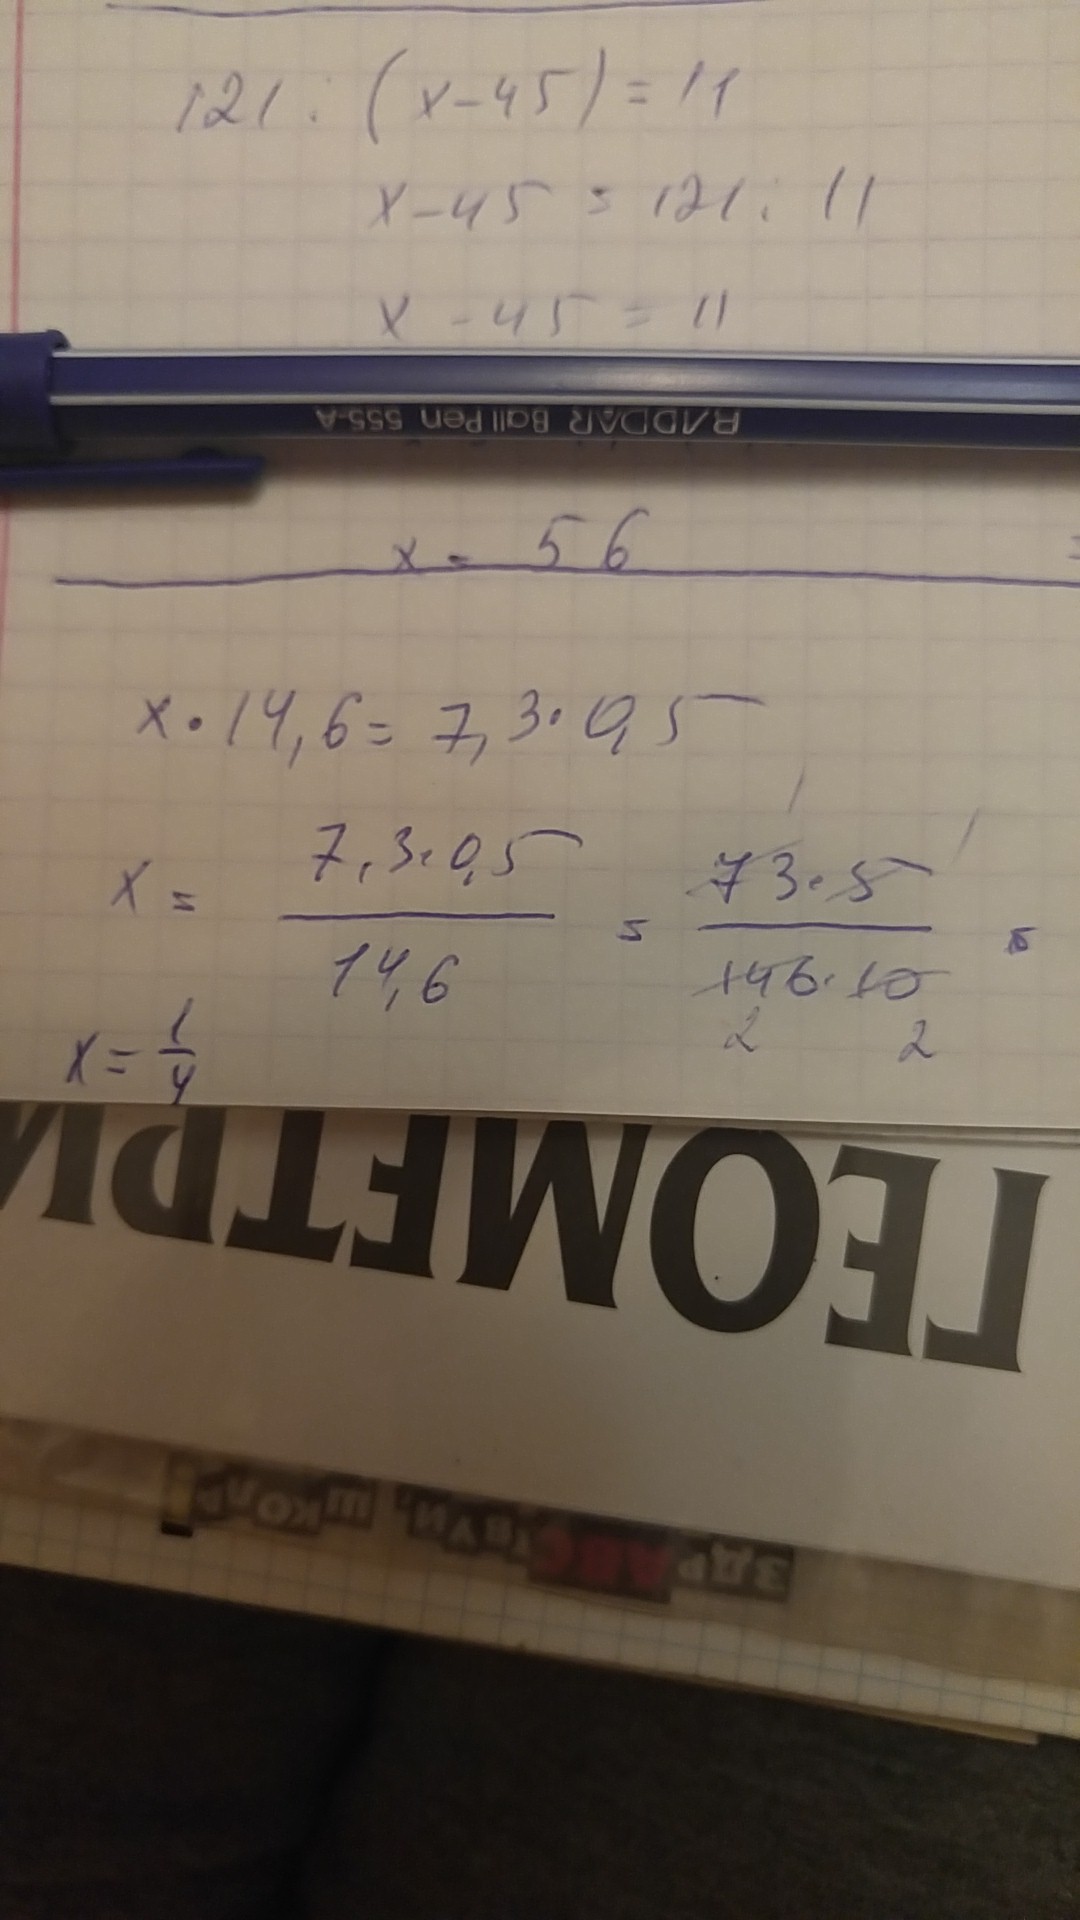 121 : (x-45) = 11
x-45 = 121 : 11
x - 45 = 11
RADDAR Ball Pen 555-A
x = 56
x · 14,6 = 7,3 · 0,5
x = 7,3 · 0,5 / 14,6 = 73 · 5 / 146 · 10 =
1 1
2 2
x = 1/4
ГЕОМЕТРИ
ЗДРАВСТВУЙ, ШКОЛА